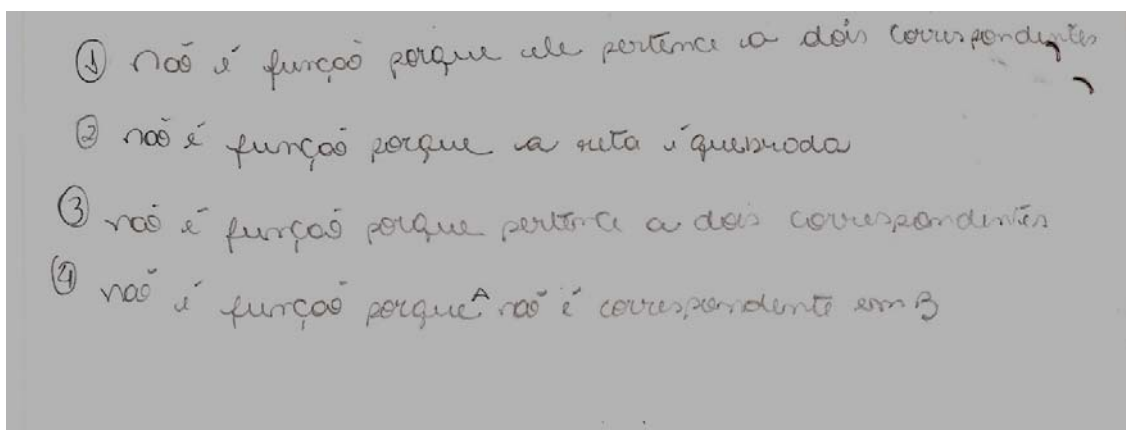 ① não é função porque ele pertence a dois correspondentes
② não é função porque a reta é quebrada
③ não é função porque pertence a dois correspondentes
④ não é função porque A não é correspondente em B